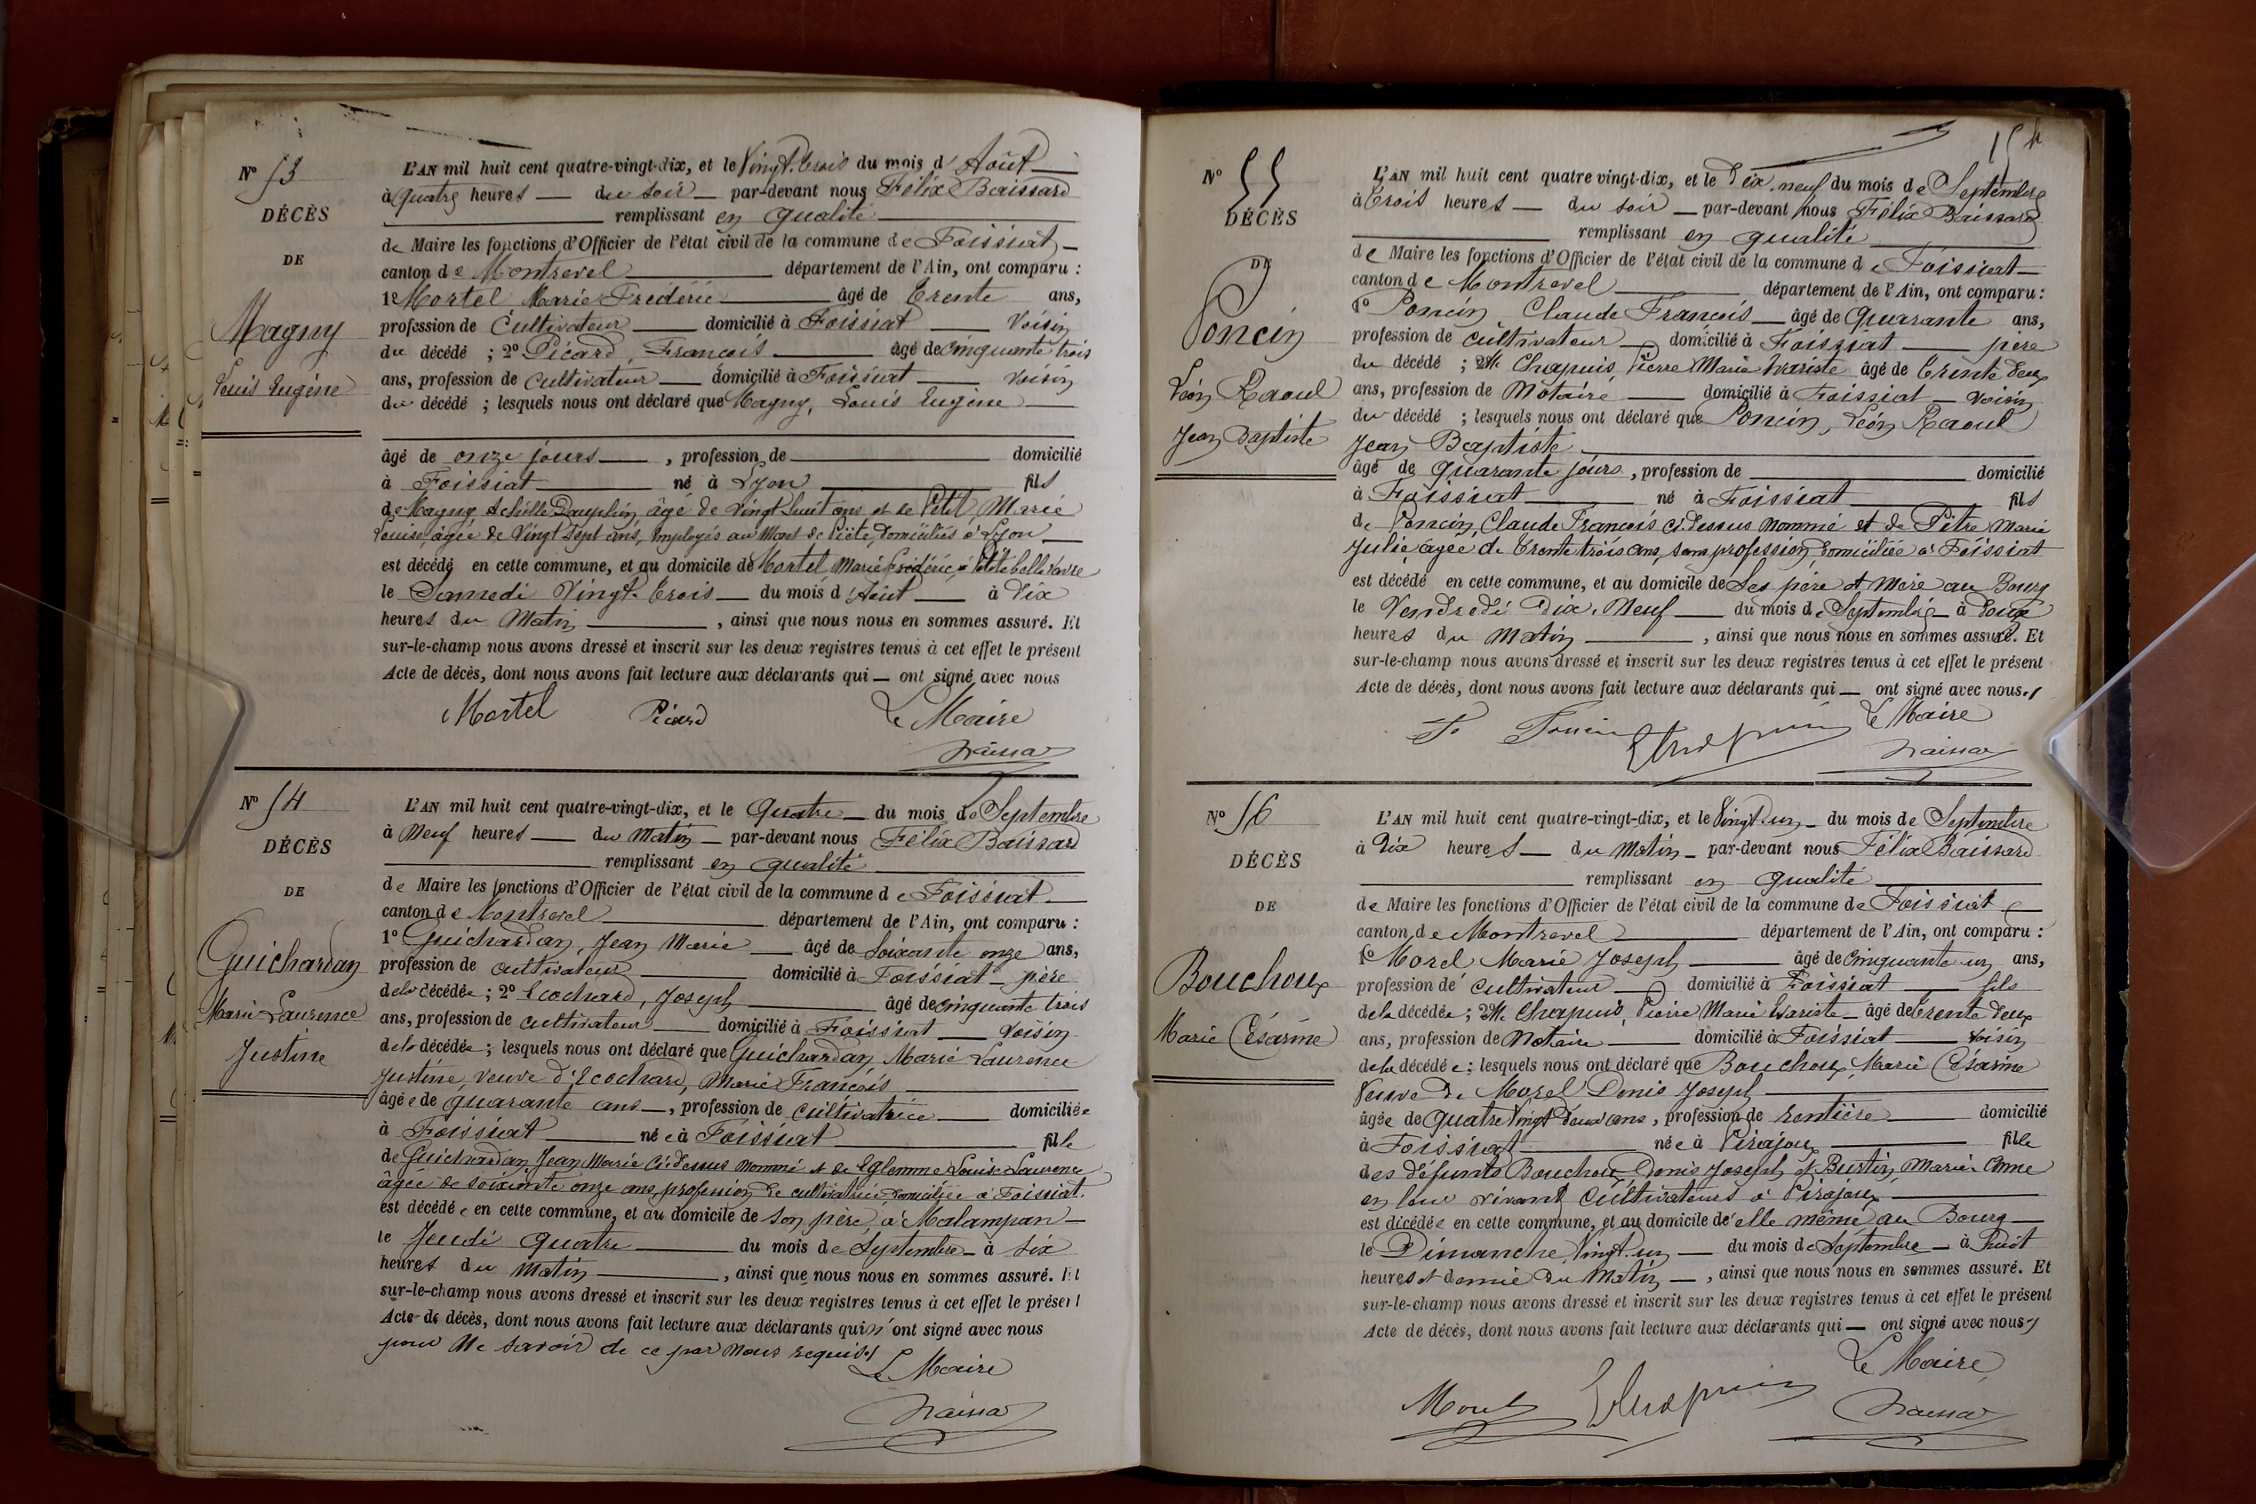 N° 53
DÉCÈS
DE
Magny
Louis Eugène
L'AN mil huit cent quatre-vingt-dix, et le Vingt-trois du mois d'Août
à quatre heures du soir par-devant nous Félix Baissard
remplissant en qualité
de Maire les fonctions d'Officier de l'état civil de la commune de Foissiat
canton de Montrevel département de l'Ain, ont comparu :
1° Mortel Marie Frédéric âgé de trente ans,
profession de Cultivateur domicilié à Foissiat Voisin
du décédé ; 2° Picard, François âgé de cinquante trois
ans, profession de cultivateur domicilié à Foissiat voisin
du décédé ; lesquels nous ont déclaré que Magny, Louis Eugène
âgé de onze jours, profession de domicilié
à Foissiat né à Lyon fils
de Magny Achille Dauphin âgé de vingt huit ans et de Petit Marie
Louise, âgée de Vingt Sept ans, employés au Mont de Piété, domiciliés à Lyon
est décédé en cette commune, et au domicile de Mortel Marie Frédéric à
le Samedi Vingt-trois du mois d'Août à dix
heures du Matin, ainsi que nous nous en sommes assuré. Et
sur-le-champ nous avons dressé et inscrit sur les deux registres tenus à cet effet le présent
Acte de décès, dont nous avons fait lecture aux déclarants qui ont signé avec nous
Mortel Picard Le Maire
N° 54
DÉCÈS
DE
Guichardan
Marie Laurence
Justine
L'AN mil huit cent quatre-vingt-dix, et le Quatre du mois de Septembre
à Neuf heures du Matin par-devant nous Félix Baissard
remplissant en qualité
de Maire les fonctions d'Officier de l'état civil de la commune de Foissiat
canton de Montrevel département de l'Ain, ont comparu :
1° Guichardan, Jean Marie âgé de soixante onze ans,
profession de cultivateur domicilié à Foissiat père
de la décédée ; 2° Ecochard, Joseph âgé de cinquante trois
ans, profession de cultivateur domicilié à Foissiat voisin
de la décédée ; lesquels nous ont déclaré que Guichardan, Marie Laurence
Justine, veuve d'Ecochard, Marie François
âgée de quarante ans, profession de cultivatrice domiciliée
à Foissiat née à Foissiat fille
de Guichardan Jean Marie ci-dessus nommé et de Eglemme Louise Laurence
âgée de soixante onze ans, profession de cultivatrice domiciliée à Foissiat.
est décédée en cette commune, et au domicile de son père, à Malampan
le Jeudi quatre du mois de Septembre à six
heures du Matin, ainsi que nous nous en sommes assuré. Et
sur-le-champ nous avons dressé et inscrit sur les deux registres tenus à cet effet le présent
Acte de décès, dont nous avons fait lecture aux déclarants qui n'ont signé avec nous
pour ne savoir de ce par nous requis
Le Maire
N° 55
DÉCÈS
DE
Poncin
Léon Raoul
Jean Baptiste
L'AN mil huit cent quatre vingt-dix, et le Dix-neuf du mois de Septembre
à trois heures du soir par-devant nous Félix Baissard
remplissant en qualité
de Maire les fonctions d'Officier de l'état civil de la commune de Foissiat
canton de Montrevel département de l'Ain, ont comparu :
1° Poncin, Claude François âgé de quarante ans,
profession de cultivateur domicilié à Foissiat père
du décédé ; 2° Me Chapuis, Pierre Marie Evariste âgé de trente deux
ans, profession de Notaire domicilié à Foissiat voisin
du décédé ; lesquels nous ont déclaré que Poncin, Léon Raoul
Jean Baptiste
âgé de quarante jours, profession de domicilié
à Foissiat né à Foissiat fils
de Poncin, Claude François ci-dessus nommé et de Pitre Marie
Julie, âgée de trente trois ans, sans profession, domiciliée à Foissiat
est décédé en cette commune, et au domicile de Ses père et Mère au Bourg
le Vendredi Dix-Neuf du mois de Septembre à
heures du Matin, ainsi que nous nous en sommes assuré. Et
sur-le-champ nous avons dressé et inscrit sur les deux registres tenus à cet effet le présent
Acte de décès, dont nous avons fait lecture aux déclarants qui ont signé avec nous
Poncin Le Maire
N° 56
DÉCÈS
DE
Bouchoux
Marie Césarine
L'AN mil huit cent quatre-vingt-dix, et le Vingt-un du mois de Septembre
à Dix heures du Matin par-devant nous Félix Baissard
remplissant en qualité
de Maire les fonctions d'Officier de l'état civil de la commune de Foissiat
canton de Montrevel département de l'Ain, ont comparu :
1° Morel Marie Joseph âgé de cinquante un ans,
profession de cultivateur domicilié à Foissiat fils
de la décédée ; 2° Me Chapuis, Pierre Marie Evariste âgé de trente deux
ans, profession de Notaire domicilié à Foissiat voisin
de la décédée ; lesquels nous ont déclaré que Bouchoux, Marie Césarine
Veuve de Morel Denis Joseph
âgée de quatre Vingt deux ans, profession de rentière domicilié
à Foissiat née à Pirajoux fille
des défunts Bouchoux, Denis Joseph et Burtin, Marie Anne
en leur vivant cultivateurs à Pirajoux
est décédée en cette commune, et au domicile d'elle même au Bourg
le Dimanche Vingt-un du mois de Septembre à huit
heures et demie du Matin, ainsi que nous nous en sommes assuré. Et
sur-le-champ nous avons dressé et inscrit sur les deux registres tenus à cet effet le présent
Acte de décès, dont nous avons fait lecture aux déclarants qui ont signé avec nous
Le Maire
Morel